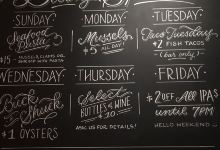 SUNDAY
MONDAY
TUESDAY
Seafood
Pasta
$15
MUSSELS, CLAMS OR
SHRIMP WITH PASTA
Mussels
$5 ALL DAY!
Taco Tuesdays
$2 FISH TACOS
(bar only)
WEDNESDAY
THURSDAY
FRIDAY
Buck
a
Shuck
$1 OYSTERS
Select
BOTTLES of WINE
$20
ASK US FOR DETAILS!
$2 OFF ALL IPAS
UNTIL 7PM
HELLO WEEKEND